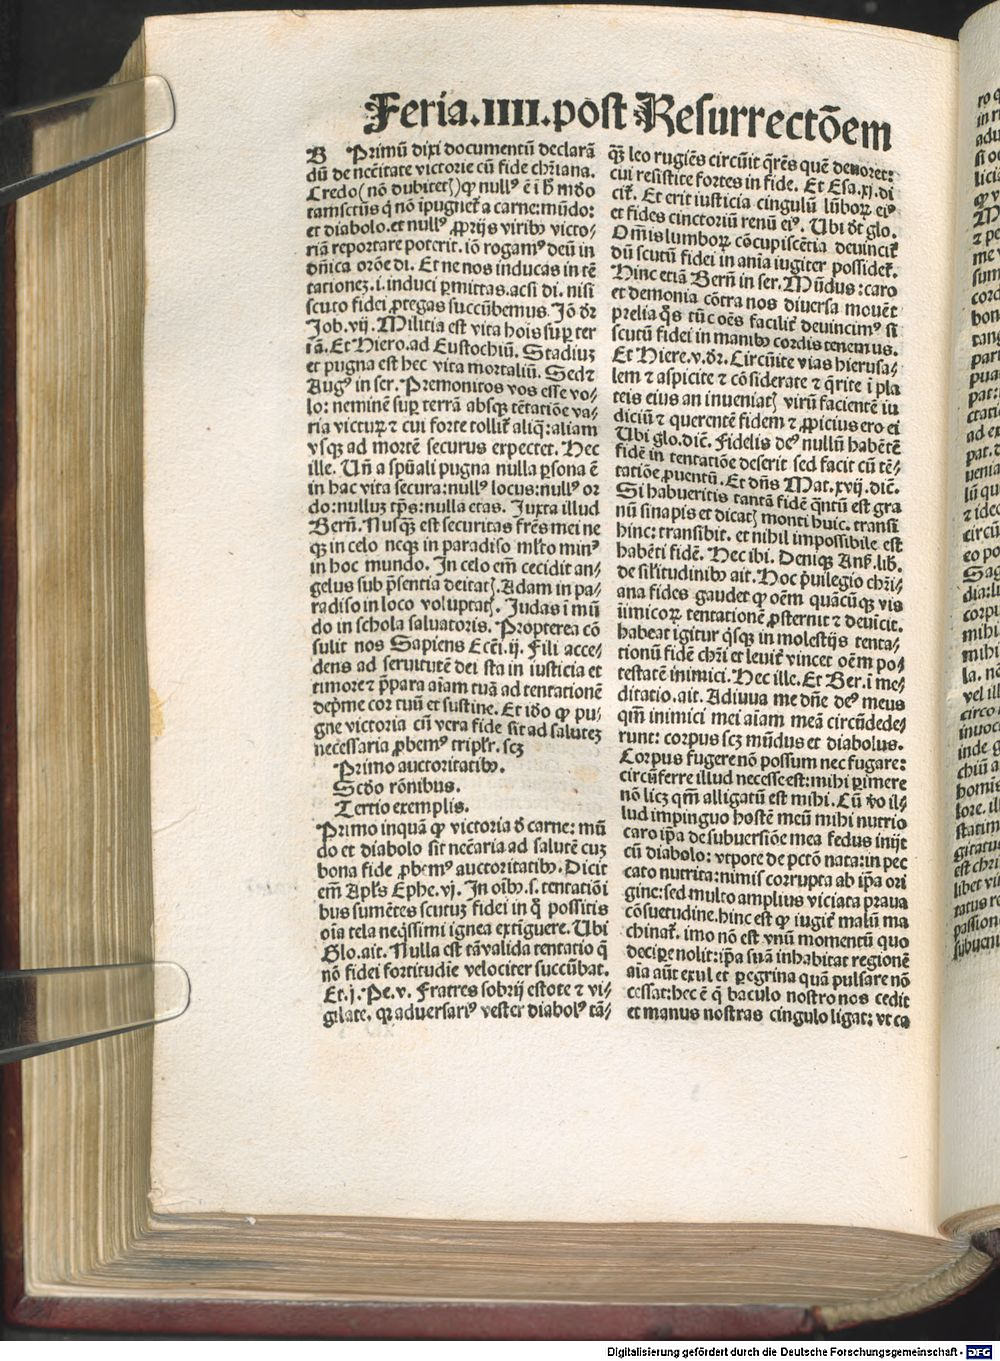 Feria.IIII.post Resurrectōem
B Primū dixi documentū declarā
dū de necc̄itate victorie cū fide chr̄iana.
Credo(nō dubitetꝭ)qꝫ nullꝰ ē ī h̄ mūdo
tamsctūs q̄ nō īpugnet̄ a carne:mūdo:
et diabolo.et nullꝰ ꝓprijs viribꝰ victo⸗
riā reportare poterit.iō rogamꝰ deū in
dn̄ica orōe di. Et ne nos inducas in tē
tationeꝫ.i.induci ꝑmittas.acsi di. nisi
scuto fidei ꝓtegas succūbemus. Jō dr̄
Job.vij. Militia est vita hoīs suꝑ ter
rā. Et Hiero.ad Eustochiū. Stadiuꝫ
et pugna est hec vita mortaliū. Sedꝫ
Augꝰ in ser. Premonitos vos esse vo⸗
lo: neminē suꝑ terrā absqꝫ tētatiōe va⸗
ria victurꝫ ⁊ cui forte tollit̄ aliq̄:aliam
vsqꝫ ad mortē securus expectet. Hec
ille. Un̄ a spūali pugna nulla ꝑsona ē
in hac vita secura:nullꝰ locus:nullꝰ or
do:nulluꝫ tp̄s:nulla etas. Juxta illud
Bern̄. Nusqꝫ est securitas frēs mei ne
qꝫ in celo neqꝫ in paradiso ml̄to minꝰ
in hoc mundo. In celo em̄ cecidit an⸗
gelus sub p̄sentia deitatꝭ. Adam in pa⸗
radiso in loco voluptatꝭ. Judas ī mū
do in schola saluatoris. Propterea cō
sulit nos Sapiens Ecc̄i.ij. Fili acce⸗
dens ad seruitutē dei sta in iusticia et
timore ⁊ p̄para aīam tuā ad tentationē
dep̄me cor tuū et sustine. Et iō qꝫ pu⸗
gne victoria cū vera fide sit ad saluteꝫ
necessaria ꝓbemꝰ triplr̄. scꝫ
Primo auctoritatibꝰ.
Scd̄o rōnibus.
Tertio exemplis.
Primo inquā qꝫ victoria d̄ carne: mū
do et diabolo sit necc̄aria ad salutē cuꝫ
bona fide ꝓbemꝰ auctoritatibꝰ. Dicit
em̄ Apl̄s Ephe.vj. In oībꝰ.s.tentatiōi
bus sumētes scutuꝫ fidei in q̄ possitis
oīa tela neq̄ssimi ignea extiguere. Ubi
Glo.ait. Nulla est tāvalida tentatio q̄
nō fidei fortitudīe velociter succūbat.
Et.j. Pe.v. Fratres sobrij estote ⁊ vi⸗
gilate. qꝛ aduersariꝰ vester diabolꝰ tā⸗
qꝫ leo rugiēs circūit q̄rēs quē deuoret:
cui resistite fortes in fide. Et Esa.xj. di
cit̄. Et erit iusticia cingulū lūborꝫ eiꝰ
et fides cinctoriū renū eiꝰ. Ubi dt̄ glo.
Om̄is lumborꝫ cōcupiscētia deuincit̄
dū scutū fidei in anīa iugiter possidet̄.
Hinc etiā Bern̄ in ser. Mūdus:caro
et demonia cōtra nos diuersa mouēt
prelia q̄s tūc oēs facilit̄ deuincimꝰ si
scutū fidei in manibꝰ cordis tenemus.
Et Hiere.v.dr̄. Circūite vias hierusa⸗
lem ⁊ aspicite ⁊ cōsiderate ⁊ q̄rite ī pla
teis eius an inueniatꝭ virū facientē iu
diciū ⁊ querentē fidem ⁊ ꝓpicius ero ei
Ubi glo.dic̄. Fidelis deꝰ nullū habētē
fidē in tentatiōe deserit sed facit cū tē⸗
tatiōe ꝓuentū. Et dn̄s Mat.xvij.dic̄.
Si habueritis tantā fidē q̄ntū est gra
nū sinapis et dicatꝭ monti huic. transi
hinc: transibit. et nihil impossibile est
habēti fidē. Hec ibi. Deniqꝫ Ans̄.lib.
de sīl'itudinibꝰ ait. Hoc p̄uilegio chr̄i⸗
ana fides gaudet qꝫ oēm quācūqꝫ vis
inimicorꝫ tentationē ꝓsternit ⁊ deuīcit.
habeat igitur q̄sqꝫ in molestijs tenta⸗
tionū fidē chr̄i et leuit̄ vincet oēm po⸗
testatē inimici. Hec ille. Et Ber. ī me⸗
ditatio.ait. Adiuua me dn̄e deꝰ meus
qm̄ inimici mei aīam meā circūdede⸗
runt: corpus scꝫ mūdus et diabolus.
Corpus fugere nō possum nec fugare:
circūferre illud necesse est:mihi ꝑimere
nō licꝫ qm̄ alligatū est mihi. Cū v̄o il⸗
lud impinguo hostē meū mihi nutrio
caro ip̄a de subuersiōe mea fedus inijt
cū diabolo: vtpote de pctō nata:in pec
cato nutrita:nimis corrupta ab ip̄a ori
gine:sed multo amplius viciata praua
cōsuetudine.hinc est qꝫ iugit̄ malū ma
chinat̄. imo nō est vnū momentū quo
deciꝑe nolit:ip̄a suā inhabitat regionē
aīa aūt exul et ꝑegrina quā pulsare nō
cessat:hec ē q̄ baculo nostro nos cedit
et manus nostras cingulo ligat: vt ca
Digitalisierung gefördert durch die Deutsche Forschungsgemeinschaft - DFG